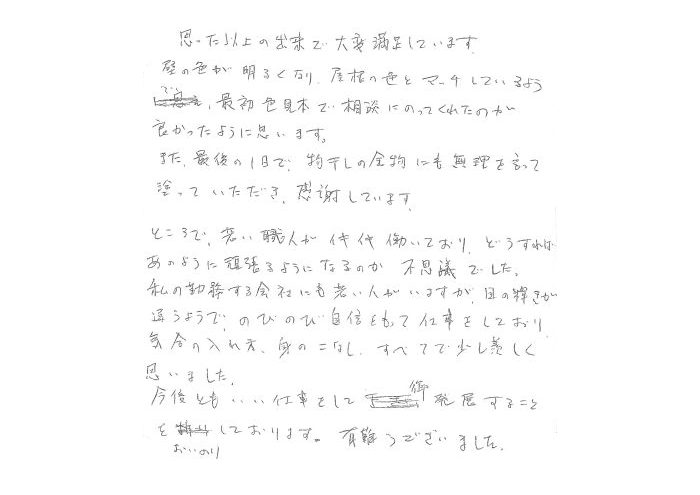 思った以上の出来で大変満足しています。
壁の色が明るくなり、屋根の色とマッチしているよう
で、最初色見本で相談にのってくれたのが
良かったように思います。
また、最後の1日で、物干しの金物にも無理を言って
塗っていただき、感謝しています。
ところで、若い職人が 働いており、どうすれば
あのように頑張るようになるのか 不思議でした。
私の勤務する会社にも若い人がいますが、目の輝きが
違うようで、のびのび自信をもって仕事をしており
気合の入れ方、身のこなし、すべてで少し羨しく
思いました。
今後ともいい仕事をして 御発展すること
をおいのりしております。有難うございました。